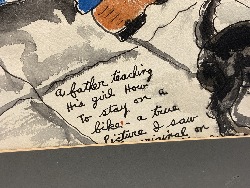 a father teaching
His girl How
To stay on a
bike: a true
Picture I saw
original on